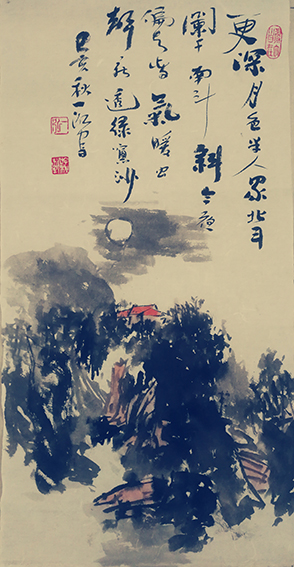 更深月色半人家北斗
闌干南斗斜今夜
偏知春氣暖虫
聲新透绿窗纱
己亥秋一江写